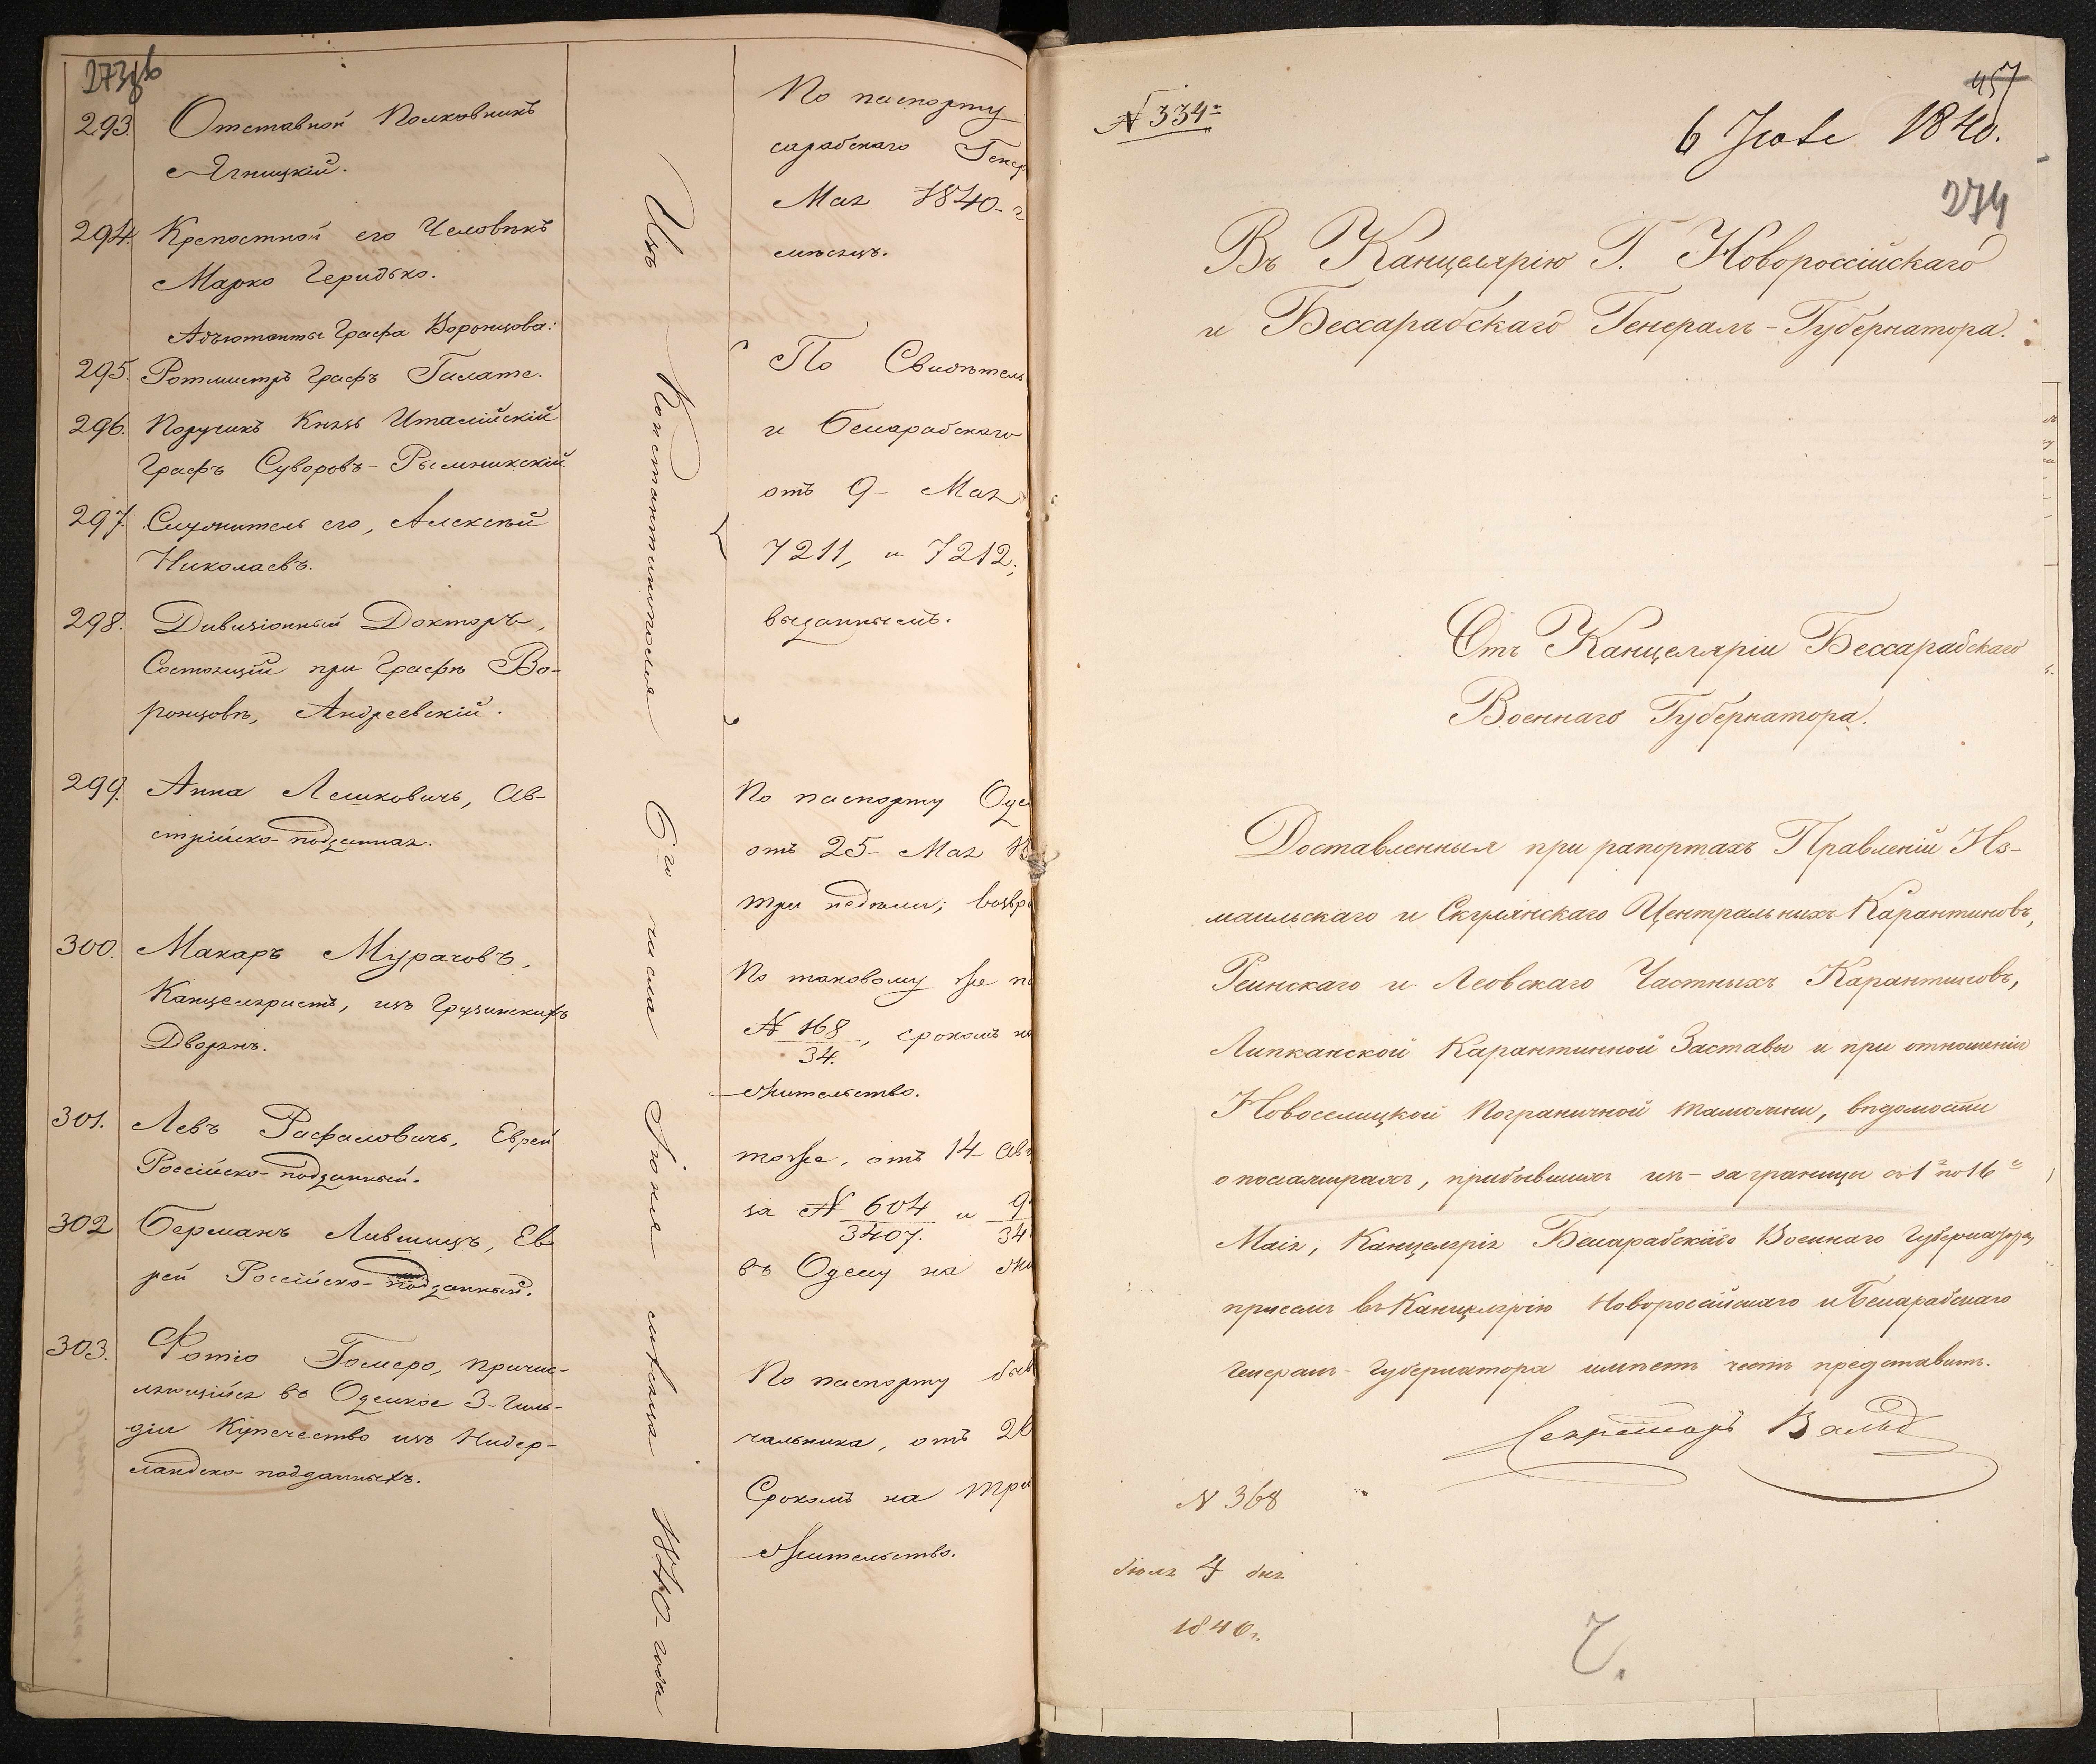 273об
293. Отставной Полковникъ
Ягницкій.
294. Крепостной его Человѣкъ
Марко Геридько.
Адъютанты Графа Воронцова:
295. Ротмистръ Графъ Галате.
296. Поручикъ Князь Италійскій
Графъ Суворовъ-Рымникскій.
297. Служитель его, Алексѣй
Николаевъ.
298. Дивизіонный Докторъ,
Состоящій при Графѣ Во-
ронцовѣ, Андреевскій.
299. Анна Лешковичъ, Ав-
стрійско-подданная.
300. Макаръ Мурачовъ,
Канцеляристъ, изъ Грузинскихъ
Дворянъ.
301. Левъ Рафаловичъ, Еврей
Россійско-подданный.
302 Берманъ Лившицъ, Ев-
рей Россійско-подданный.
303. Фотіо Гомеро, причис-
ляющійся въ Одеское 3-Гиль-
діи Купечество изъ Нидер-
ландско-подданныхъ.
Изъ Константинополя 6го числа Іюня мѣсяца 1840-года
По паспорту
сарабскаго Генер
Мая 1840-г
мѣсяцъ.
По Свидѣтель
и Бессарабскаго
отъ 9- Мая
7211, и 7212;
выданнымъ.
По паспорту Оде
отъ 25- Мая
три недѣли; возвр
По таковому же п
№ 168/34., срокомъ на
жительство.
тоже, отъ 14 Авг
за № 604/3407. и 9/34
въ Одессу на жи
По паспорту быв
чальника, отъ 26
Срокомъ на три
жительство.
№ 334-
457
6 Іюля 1840.
274
Въ Канцелярію Г. Новороссійскаго
и Бессарабскаго Генералъ-Губернатора.
Отъ Канцеляріи Бессарабскаго
Военнаго Губернатора.
Доставленныя при рапортахъ Правленій Из-
маильскаго и Скулянскаго Центральныхъ Карантиновъ,
Ренискаго и Леовскаго Частныхъ Карантиновъ,
Липканской Карантинной Заставы и при отношеніи
Новоселицкой Пограничной таможни, вѣдомости
о пассажирахъ, прибывшихъ изъ-за границы съ 1го по 16е
Маія, Канцелярія Бессарабскаго Военнаго Губернатора
при семъ въ Канцелярію Новороссійскаго и Бессарабскаго
Генералъ-Губернатора имѣетъ честь представить.
Секретарь Вальд
№ 368
Іюля 4 дня
1840 г.